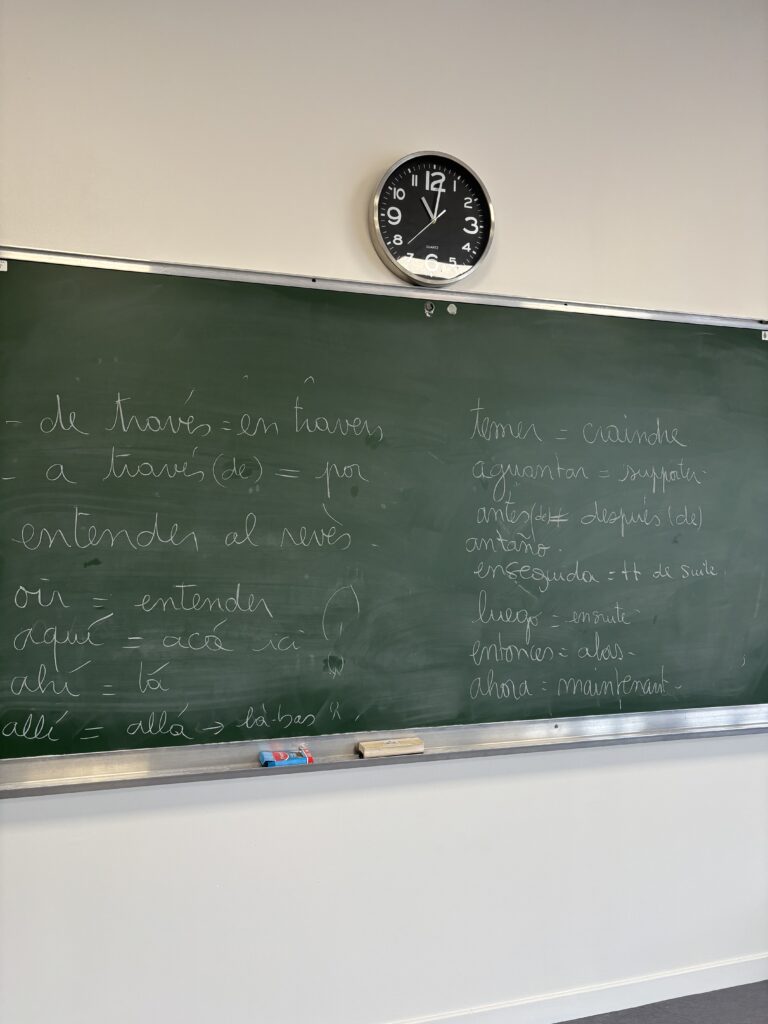 12
11 1
10 2
9 3
8 4
7 5
6
QUARTZ
- de través = en travers
- a través (de) = por
entender al revès.
oir = entender
aquí = acá ici
ahí = là
allí = allá → là-bas
temer = craindre
aguantar = supporter.
antes (de) ≠ después (de)
antaño.
enseguida = tt de suite.
luego = ensuite
entonces = alors
ahora = maintenant